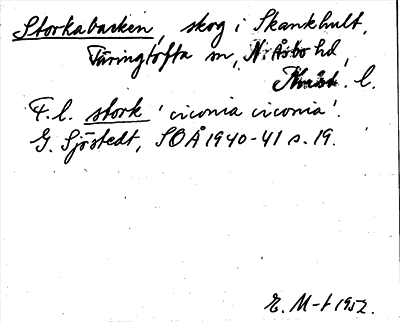 Storkabacken, skog i Skånkhult,
Täringtofta sn, N. Åsbo hd,
Krist. l.
F. l. stork 'ciconia ciconia'.
G. Sjöstedt, SOÅ 1940-41 s. 19.
E. M-t 1952.